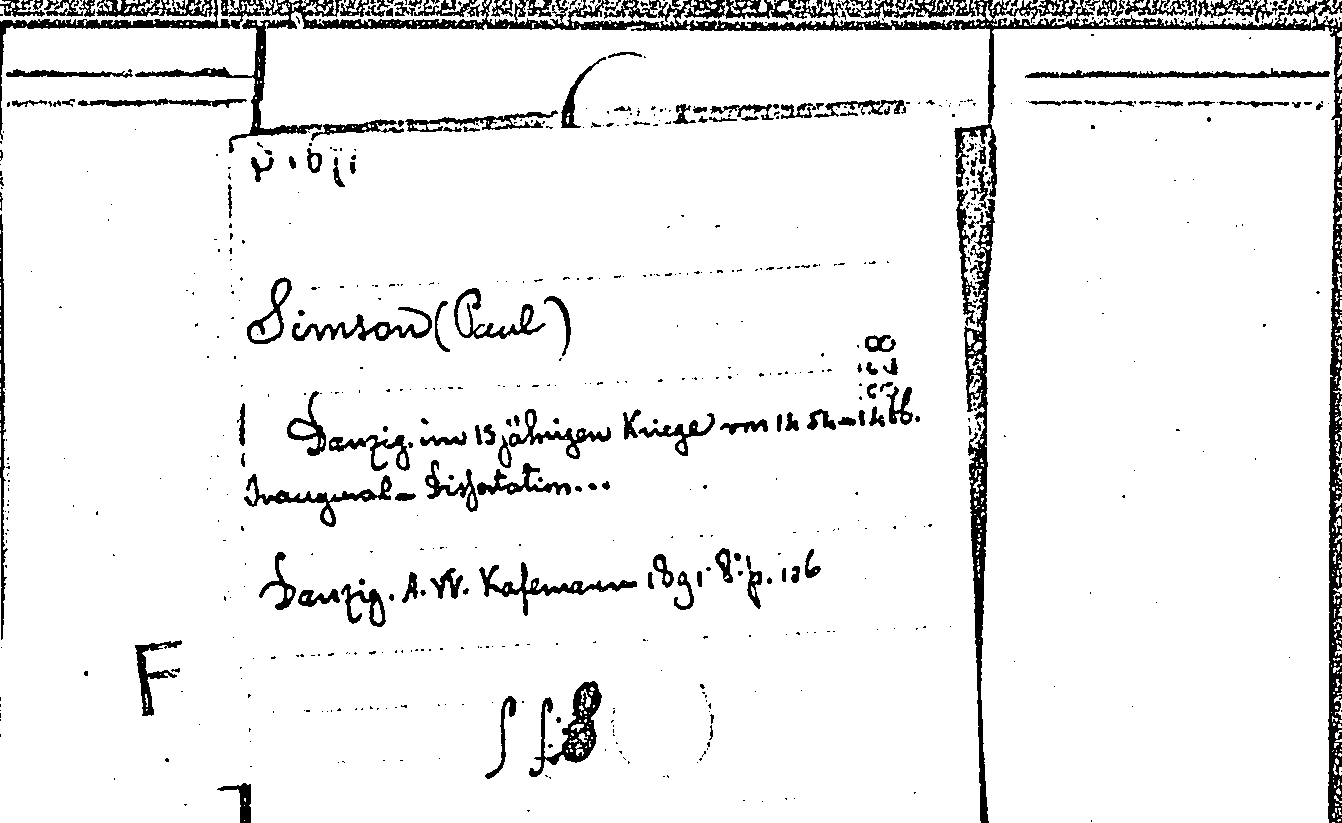 Simson (Paul)
Danzig im 13 jährigen Kriege von 1454-1466.
Inaugural-Dissertation...
Danzig. A. W. Kafemann 1891. 8: p. 126
F